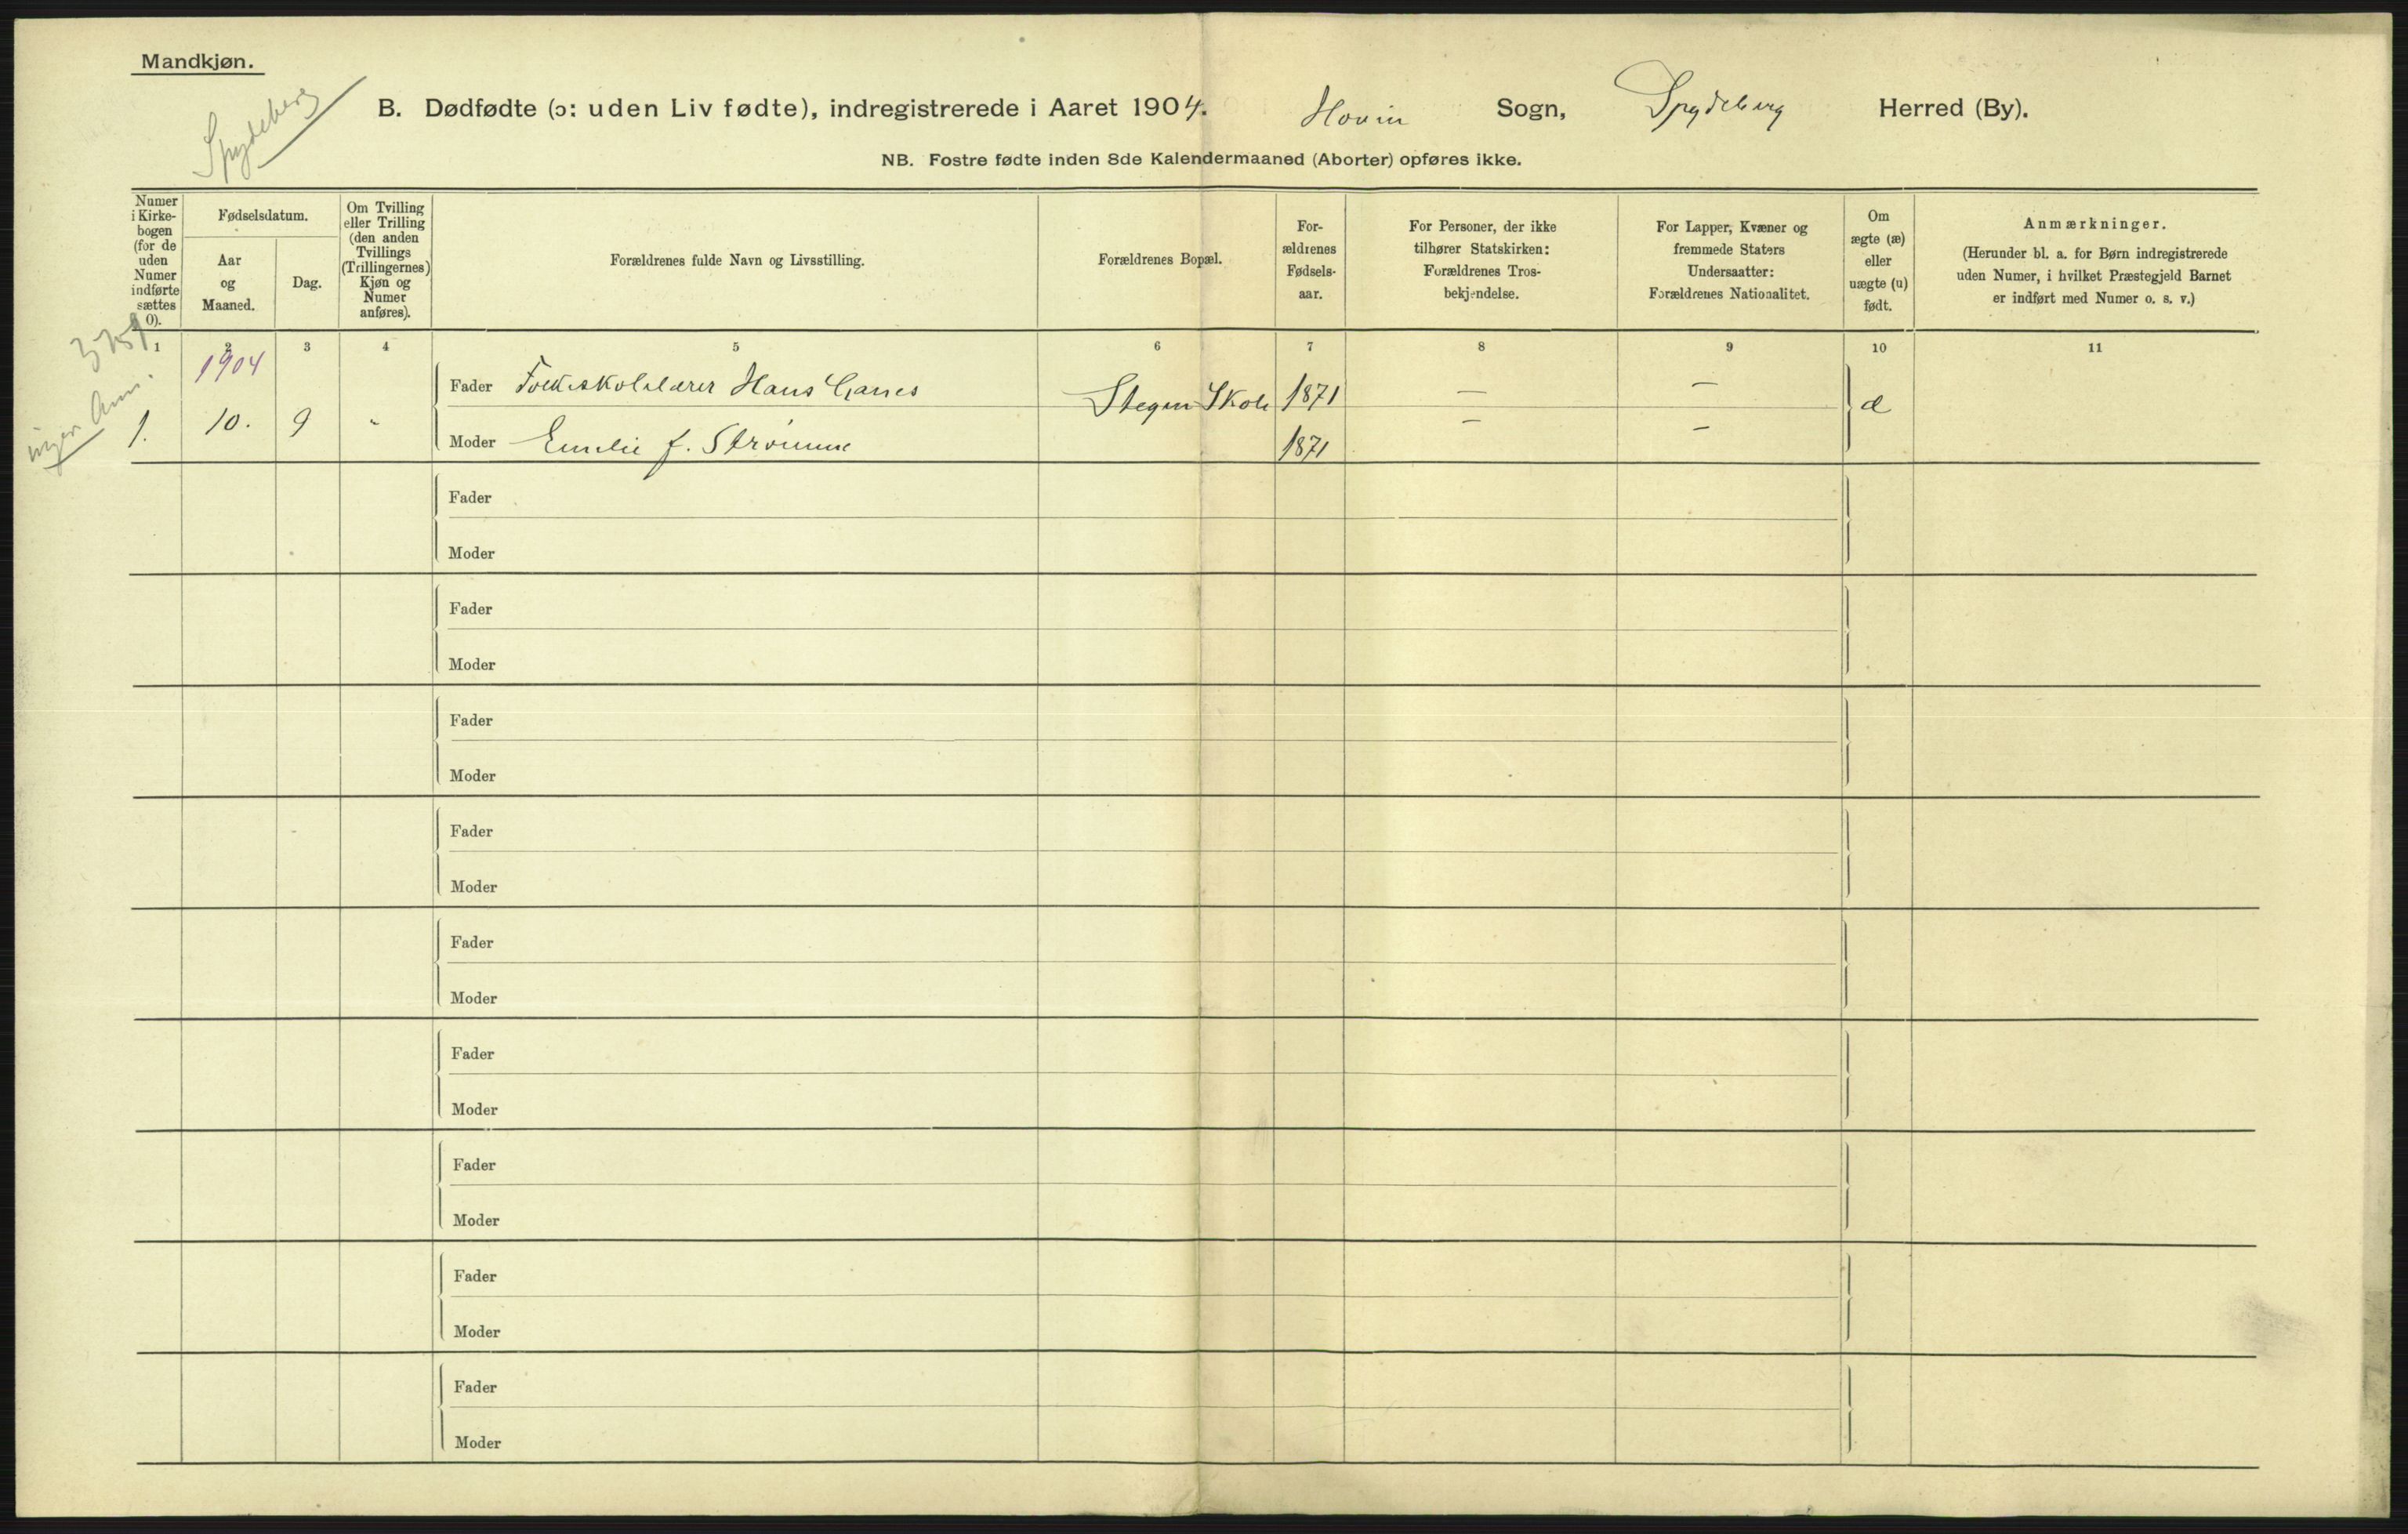 Mandkjøn.
Spydeberg
B. Dødfødte (ɔ: uden Liv fødte), indregistrerede i Aaret 1904. Hovin Sogn, Spydeberg Herred (By).
NB. Fostre fødte inden 8de Kalendermaaned (Aborter) opføres ikke.
Numer i Kirke-
bogen
(for de
uden
Numer
indførte
sættes
0).
Fødselsdatum.
Aar
og
Maaned.
Dag.
Om Tvilling
eller Trilling
(den anden
Tvillings
(Trillingernes)
Kjøn og
Numer
anføres).
Forældrenes fulde Navn og Livsstilling.
Forældrenes Bopæl.
For-
ældrenes
Fødsels-
aar.
For Personer, der ikke
tilhører Statskirken:
Forældrenes Tros-
bekjendelse.
For Lapper, Kvæner og
fremmede Staters
Undersaatter:
Forældrenes Nationalitet.
Om
ægte (æ)
eller
uægte (u)
født.
Anmærkninger.
(Herunder bl. a. for Børn indregistrerede
uden Numer, i hvilket Præstegjeld Barnet
er indført med Numer o. s. v.)
1 2 3 4 5 6 7 8 9 10 11
1904
Fader Folkeskolelærer Hans Hans Skole 1871 — —
1. 10. 9 " æ
Moder Emilie f. Strømme 1871 — —
Fader
Moder
Fader
Moder
Fader
Moder
Fader
Moder
Fader
Moder
Fader
Moder
Fader
Moder
Fader
Moder
Fader
Moder